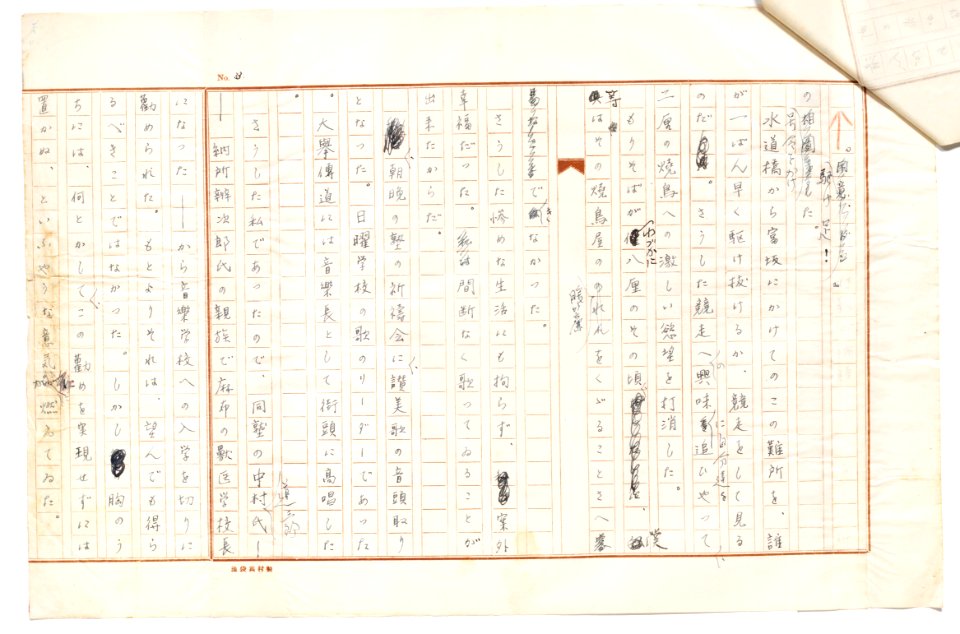 No. 3
水道橋から富坂にかけてのこの難所を、誰
が一ばん早く駆け抜けるか、競走をして見る
のだ。さうした競走へ興味を追ひやつて
二厘の焼鳥への激しい慾望を打消した。
もりそばがわづかに八厘のその頃
はその焼鳥屋ののれんをくゞることさへ
できなかつた。
さうした惨めな生活にも拘らず、案外
幸福だつた。間断なく歌つてゐることが
出来たからだ。
朝晩の塾の祈祷会に讃美歌の音頭取り
となつた。日曜学校の歌のリーダーであつた
大挙傳道には音楽長として街頭に高唱した
。
さうした私であつたので、同塾の中村氏―
―納所辨次郎氏の親族で麻布の獣医学校長
になつた――から音楽学校への入学を切りに
勸められた。もとよりそれは、望んでも得ら
るべきことではなかつた。しかし胸のう
ちには、何とかしてこの勸めを実現せずには
置かぬ、といふやうな意気が燃えてゐた。